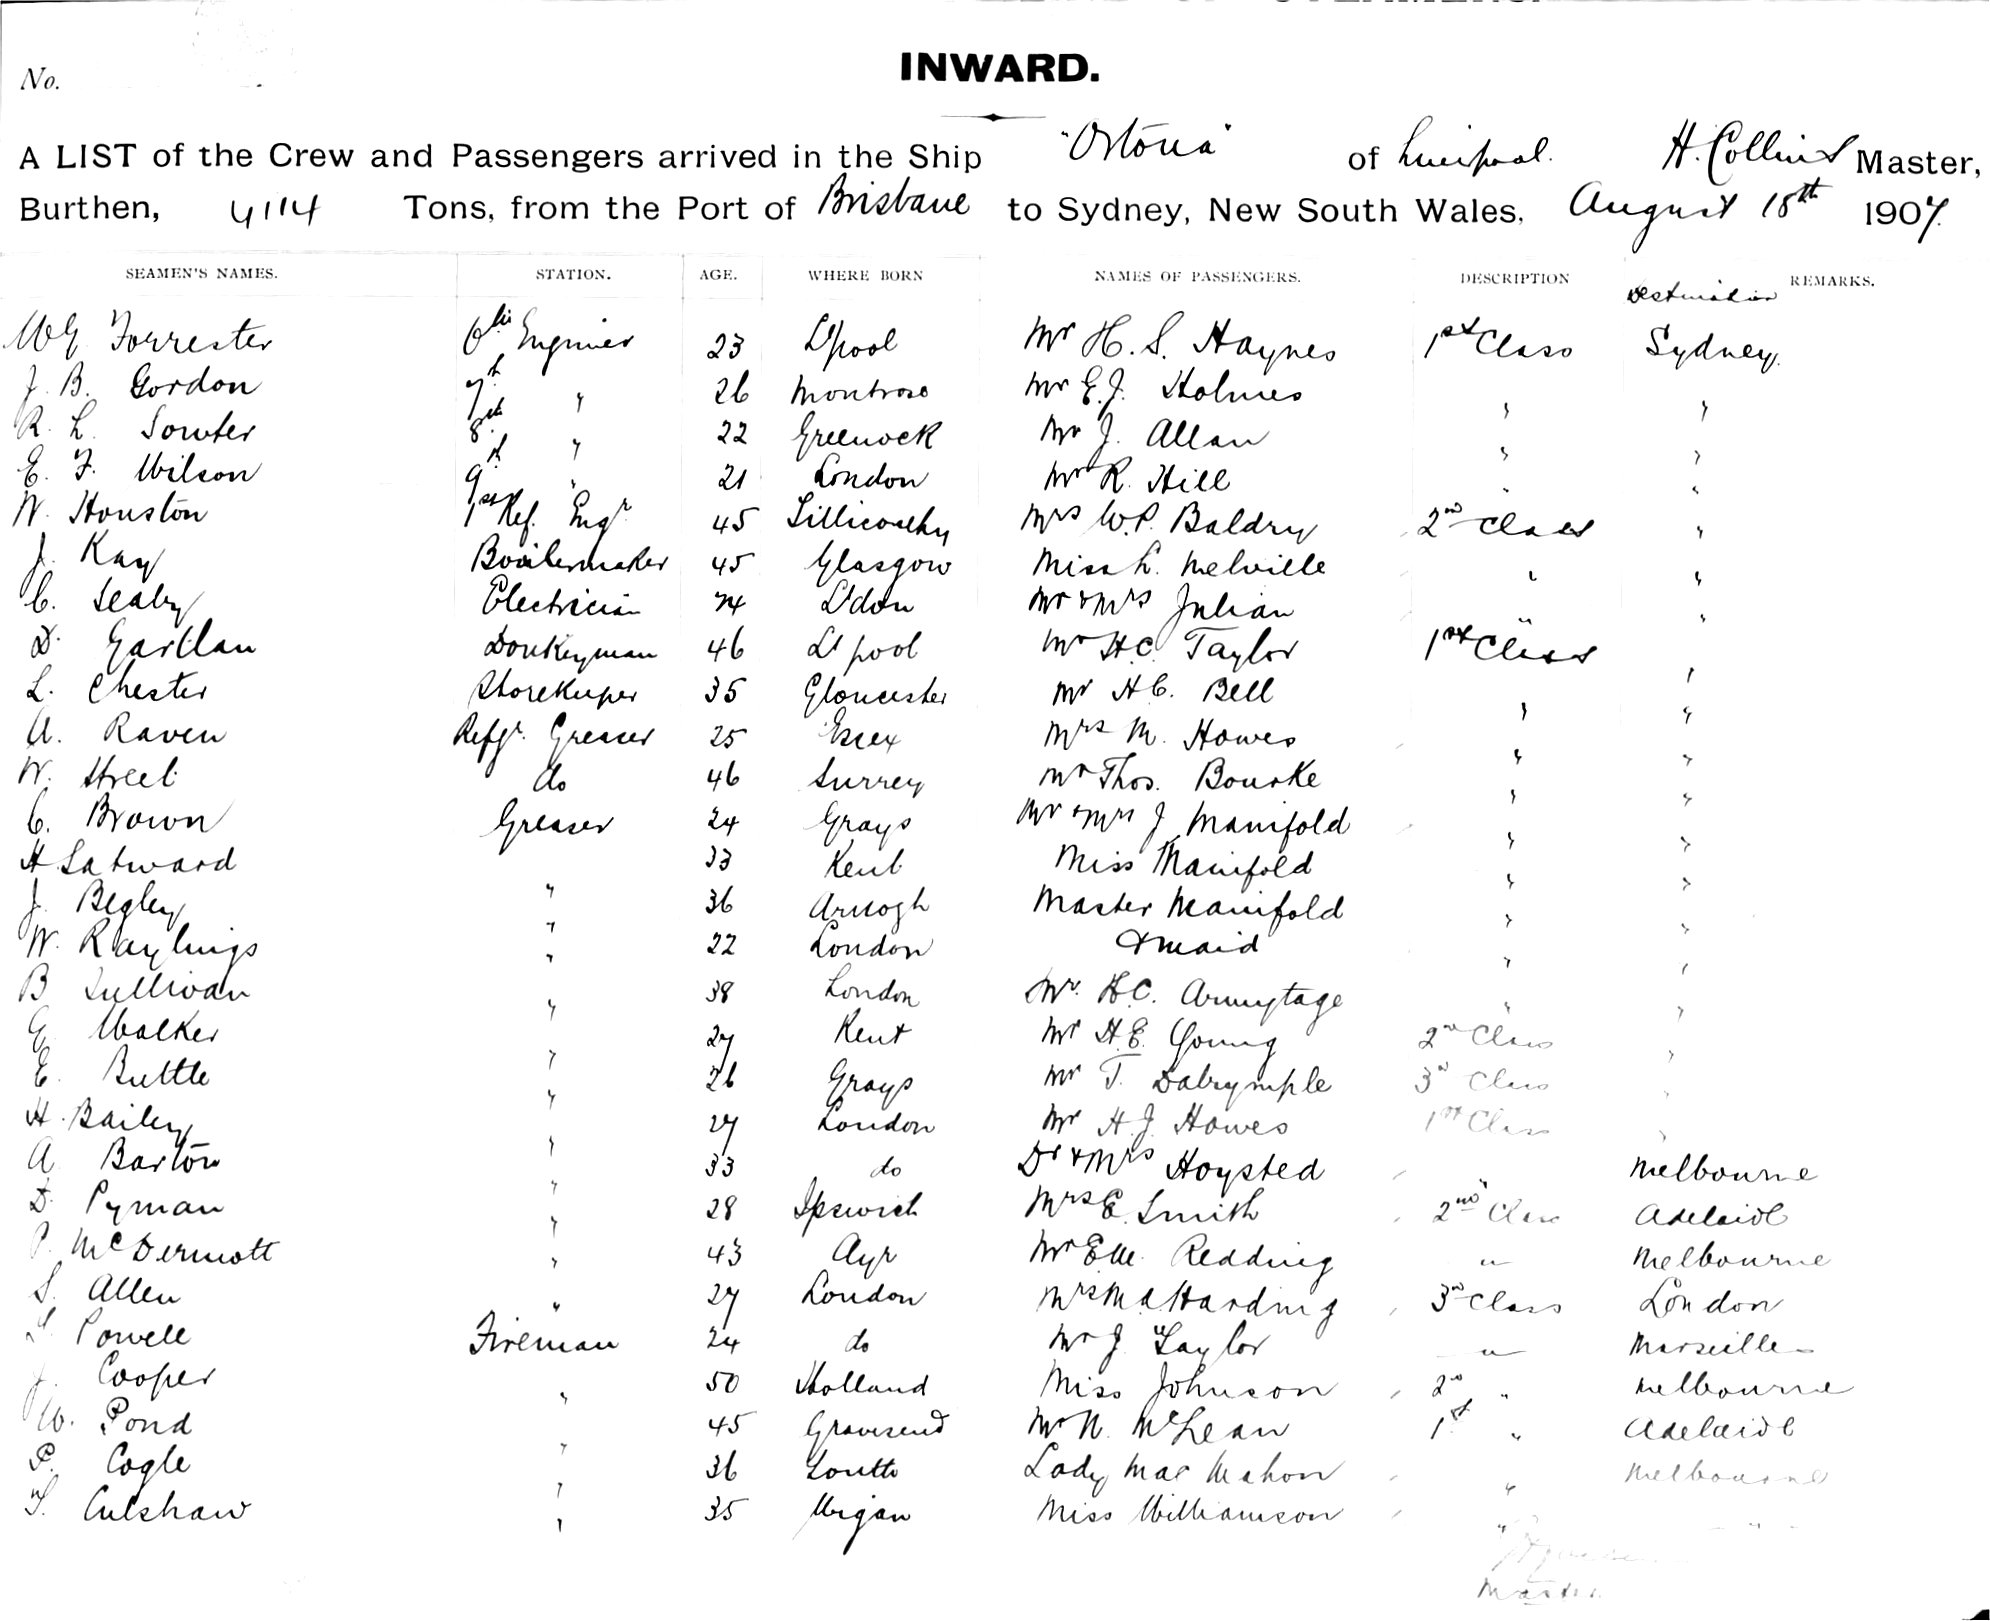 INWARD.
No.
A LIST of the Crew and Passengers arrived in the Ship "Ortona" of Liverpool. H. Collins Master,
Burthen, 4114 Tons, from the Port of Brisbane to Sydney, New South Wales, August 18th 1907.
SEAMEN'S NAMES. STATION. AGE. WHERE BORN NAMES OF PASSENGERS. DESCRIPTION Destination REMARKS.
WG Forrester 6th Engineer 23 L'pool Mr H. S. Haynes 1st Class Sydney.
J. B. Gordon 7th " 26 Montrose Mr E. J. Holmes " "
R. L. Souter 8th " 22 Greenock Mr J. Allan " "
E. F. Wilson 9th " 21 London Mr R. Hill " "
W. Houston 1st Ref. Engr 45 Mrs W.P. Baldry 2nd Class "
J. Kay Boilermaker 45 Glasgow Miss L. Melville " "
C. Sealy Electrician 24 L'don Mr & Mrs Julian " "
D. Gartlan Donkeyman 46 L'pool Mr H.C. Taylor 1st Class "
L. Chester Storekeeper 35 Gloucester Mr H C. Bell " "
A. Raven Refgr. Greaser 25 Essex Mrs M. Howes " "
W. Street do 46 Surrey Mr Thos. Bourke " "
C. Brown Greaser 24 Grays Mr & Mrs J Manifold " "
H Satward " 33 Kent Miss Manifold " "
J. Begley " 36 Armagh Master Manifold " "
W. Raylings " 22 London & maid " "
B Sullivan " 38 London Mr. H.C. Armytage " "
G Walker " 27 Kent Mr H.E. Young 2nd Class "
E. Buttle " 26 Grays Mr T. Dalrymple 3rd Class "
H. Bailey " 27 London Mr H. J. Howes 1st Class "
A Barton " 33 do Dr & Mrs Hoysted " Melbourne
D. Pyman " 28 Ipswich Mrs E. Smith 2nd Class Adelaide
P. McDermott " 43 Ayr Mr Redding " Melbourne
S. Allen " 27 London Mrs M.A. Harding 3rd Class London
Powell Fireman 24 do Mr J. Taylor " Marseilles
J. Cooper " 50 Holland Miss Johnson 2nd " Melbourne
W. Pond " 45 Gravesend Mr N. McLean 1st " Adelaide
P. Cogle " 36 Louth Lady Mac Mahon " Melbourne
T. Culshaw " 35 Wigan Miss Williamson " "
Master